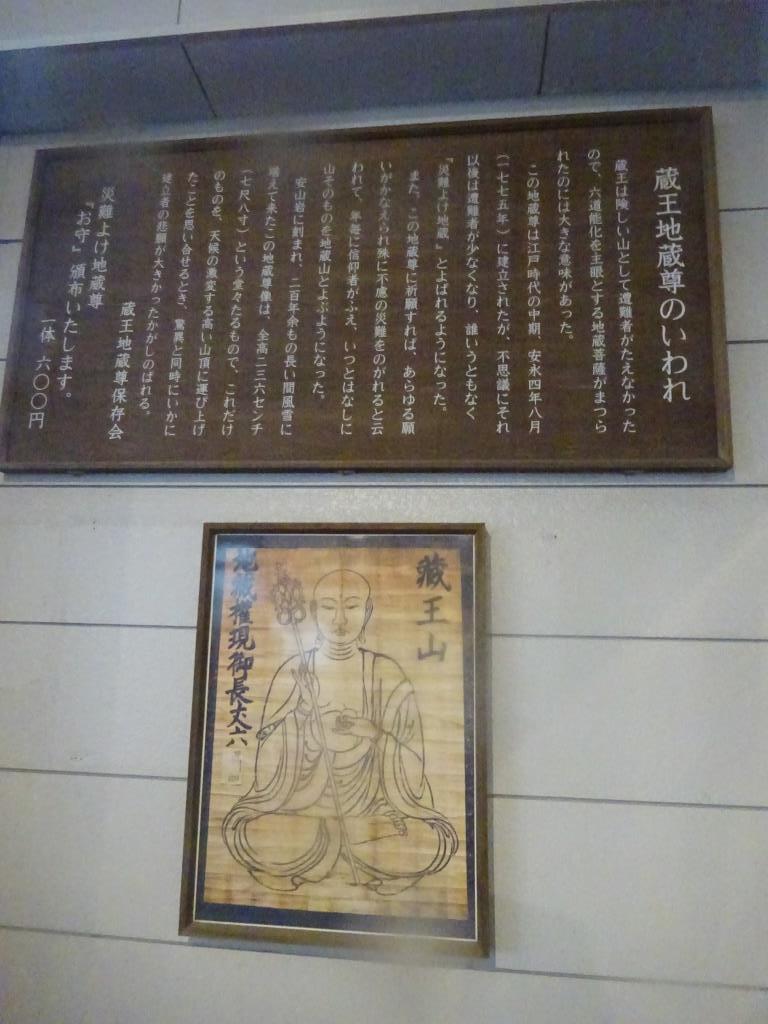 蔵王地蔵尊のいわれ
蔵王は険しい山として遭難者がたえなかった
ので、六道能化を主眼とする地蔵菩薩がまつら
れたのには大きな意味があった。
この地蔵尊は江戸時代の中期、安永四年八月
(一七七五年)に建立されたが、不思議にそれ
以後は遭難者が少なくなり、誰いうともなく
『災難よけ地蔵』とよばれるようになった。
また、この地蔵尊に祈願すれば、あらゆる願
いがかなえられ殊に不慮の災難をのがれると云
われて、年毎に信仰者がふえ、いつとはなしに
山そのものを地蔵山とよぶようになった。
安山岩に刻まれ、二百年余もの長い間風雪に
堪えて来たこの地蔵尊像は、全高二三六センチ
(七尺八寸)という堂々たるもので、これだけ
のものを、天候の激変する高い山頂に運び上げ
たことを思い合せるとき、驚異と同時にいかに
建立者の悲願が大きかったかがしのばれる。
蔵王地蔵尊保存会
災難よけ地蔵尊
『お守』頒布いたします。
一体 六〇〇円
蔵王山
地蔵権現御長丈六